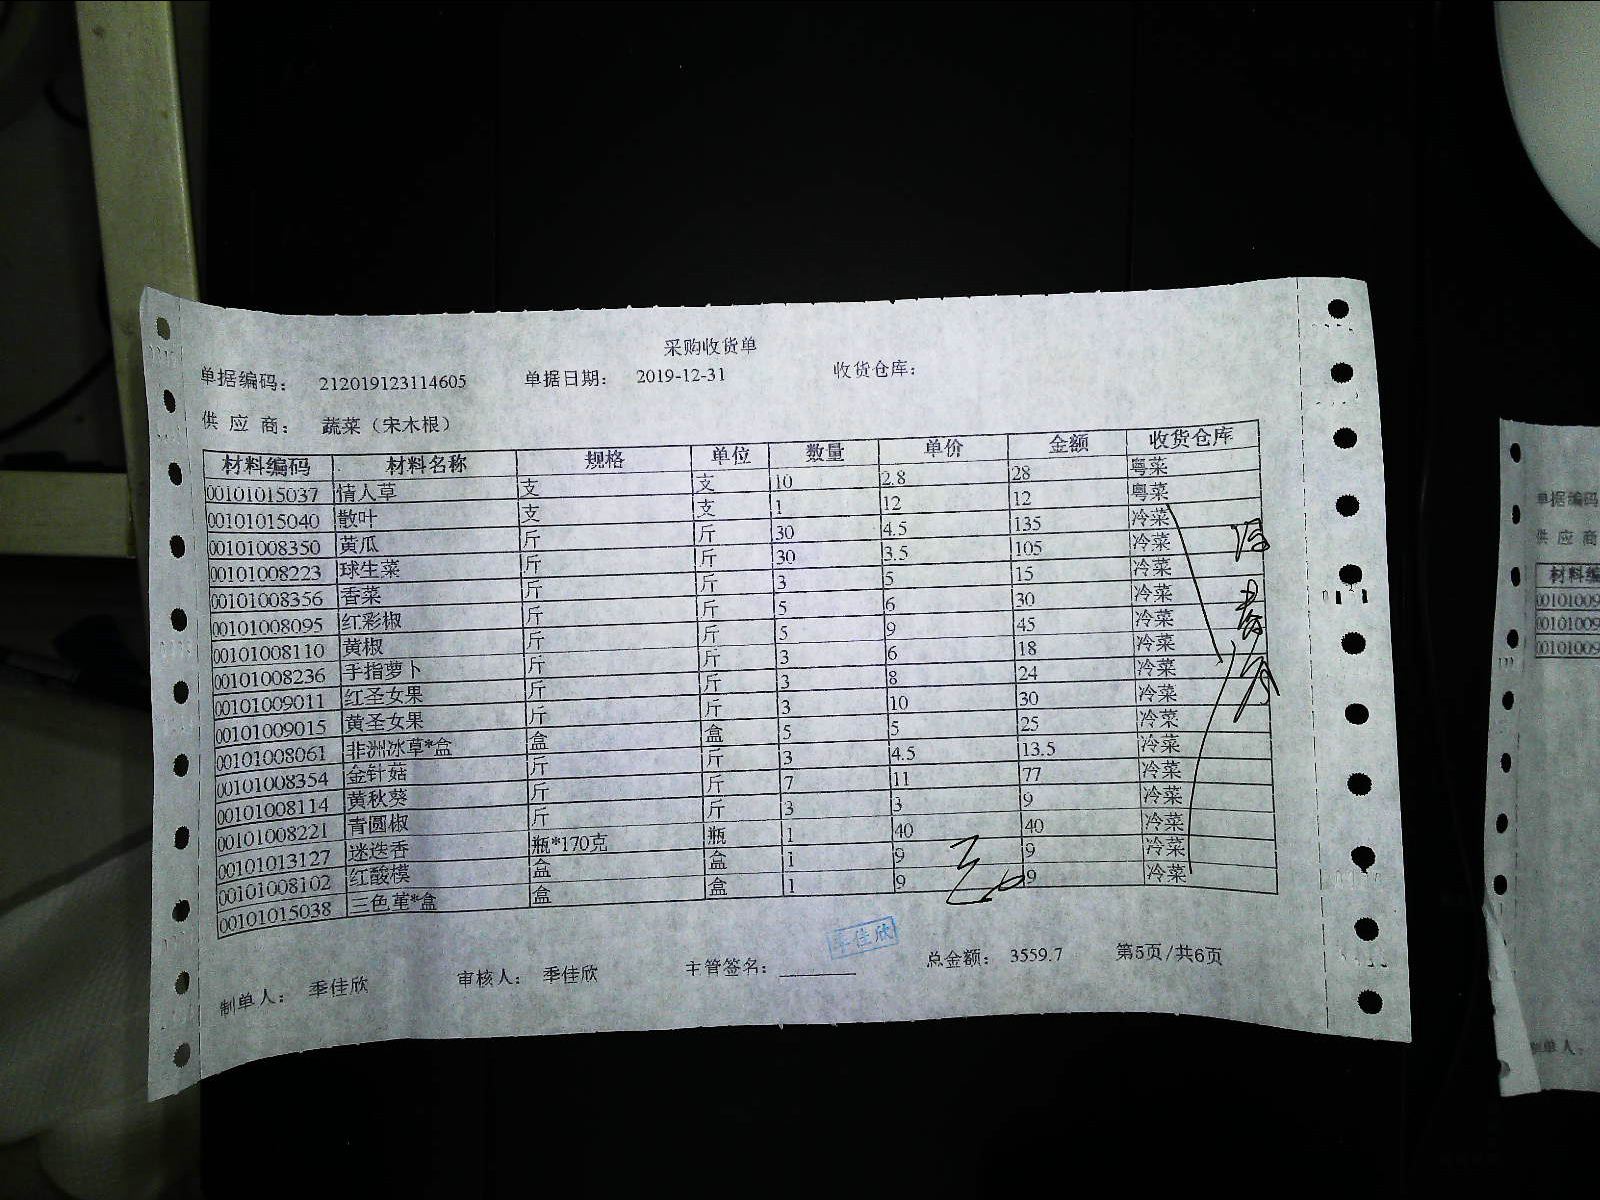 采购收货单
单据编码: 212019123114605 单据日期: 2019-12-31 收货仓库:
供 应 商: 蔬菜（宋木根）
材料编码 材料名称 规格 单位 数量 单价 金额 收货仓库
00101015037 情人草 支 支 10 2.8 28 粤菜
00101015040 散叶 支 支 1 12 12 粤菜
00101008350 黄瓜 斤 斤 30 4.5 135 冷菜
00101008223 球生菜 斤 斤 30 3.5 105 冷菜
00101008356 香菜 斤 斤 3 5 15 冷菜
00101008095 红彩椒 斤 斤 5 6 30 冷菜
00101008110 黄椒 斤 斤 5 9 45 冷菜
00101008236 手指萝卜 斤 斤 3 6 18 冷菜
00101009011 红圣女果 斤 斤 3 8 24 冷菜
00101009015 黄圣女果 斤 斤 3 10 30 冷菜
00101008061 非洲冰草*盒 盒 盒 5 5 25 冷菜
00101008354 金针菇 斤 斤 3 4.5 13.5 冷菜
00101008114 黄秋葵 斤 斤 7 11 77 冷菜
00101008221 青圆椒 斤 斤 3 3 9 冷菜
00101013127 迷迭香 瓶*170克 瓶 1 40 40 冷菜
00101008102 红酸模 盒 盒 1 9 9 冷菜
00101015038 三色堇*盒 盒 盒 1 9 9 冷菜
季佳欣
制单人: 季佳欣 审核人: 季佳欣 主管签名: 总金额: 3559.7 第5页/共6页
单据编码
供 应 商
材料编
00101009
00101009
00101009
制单人: